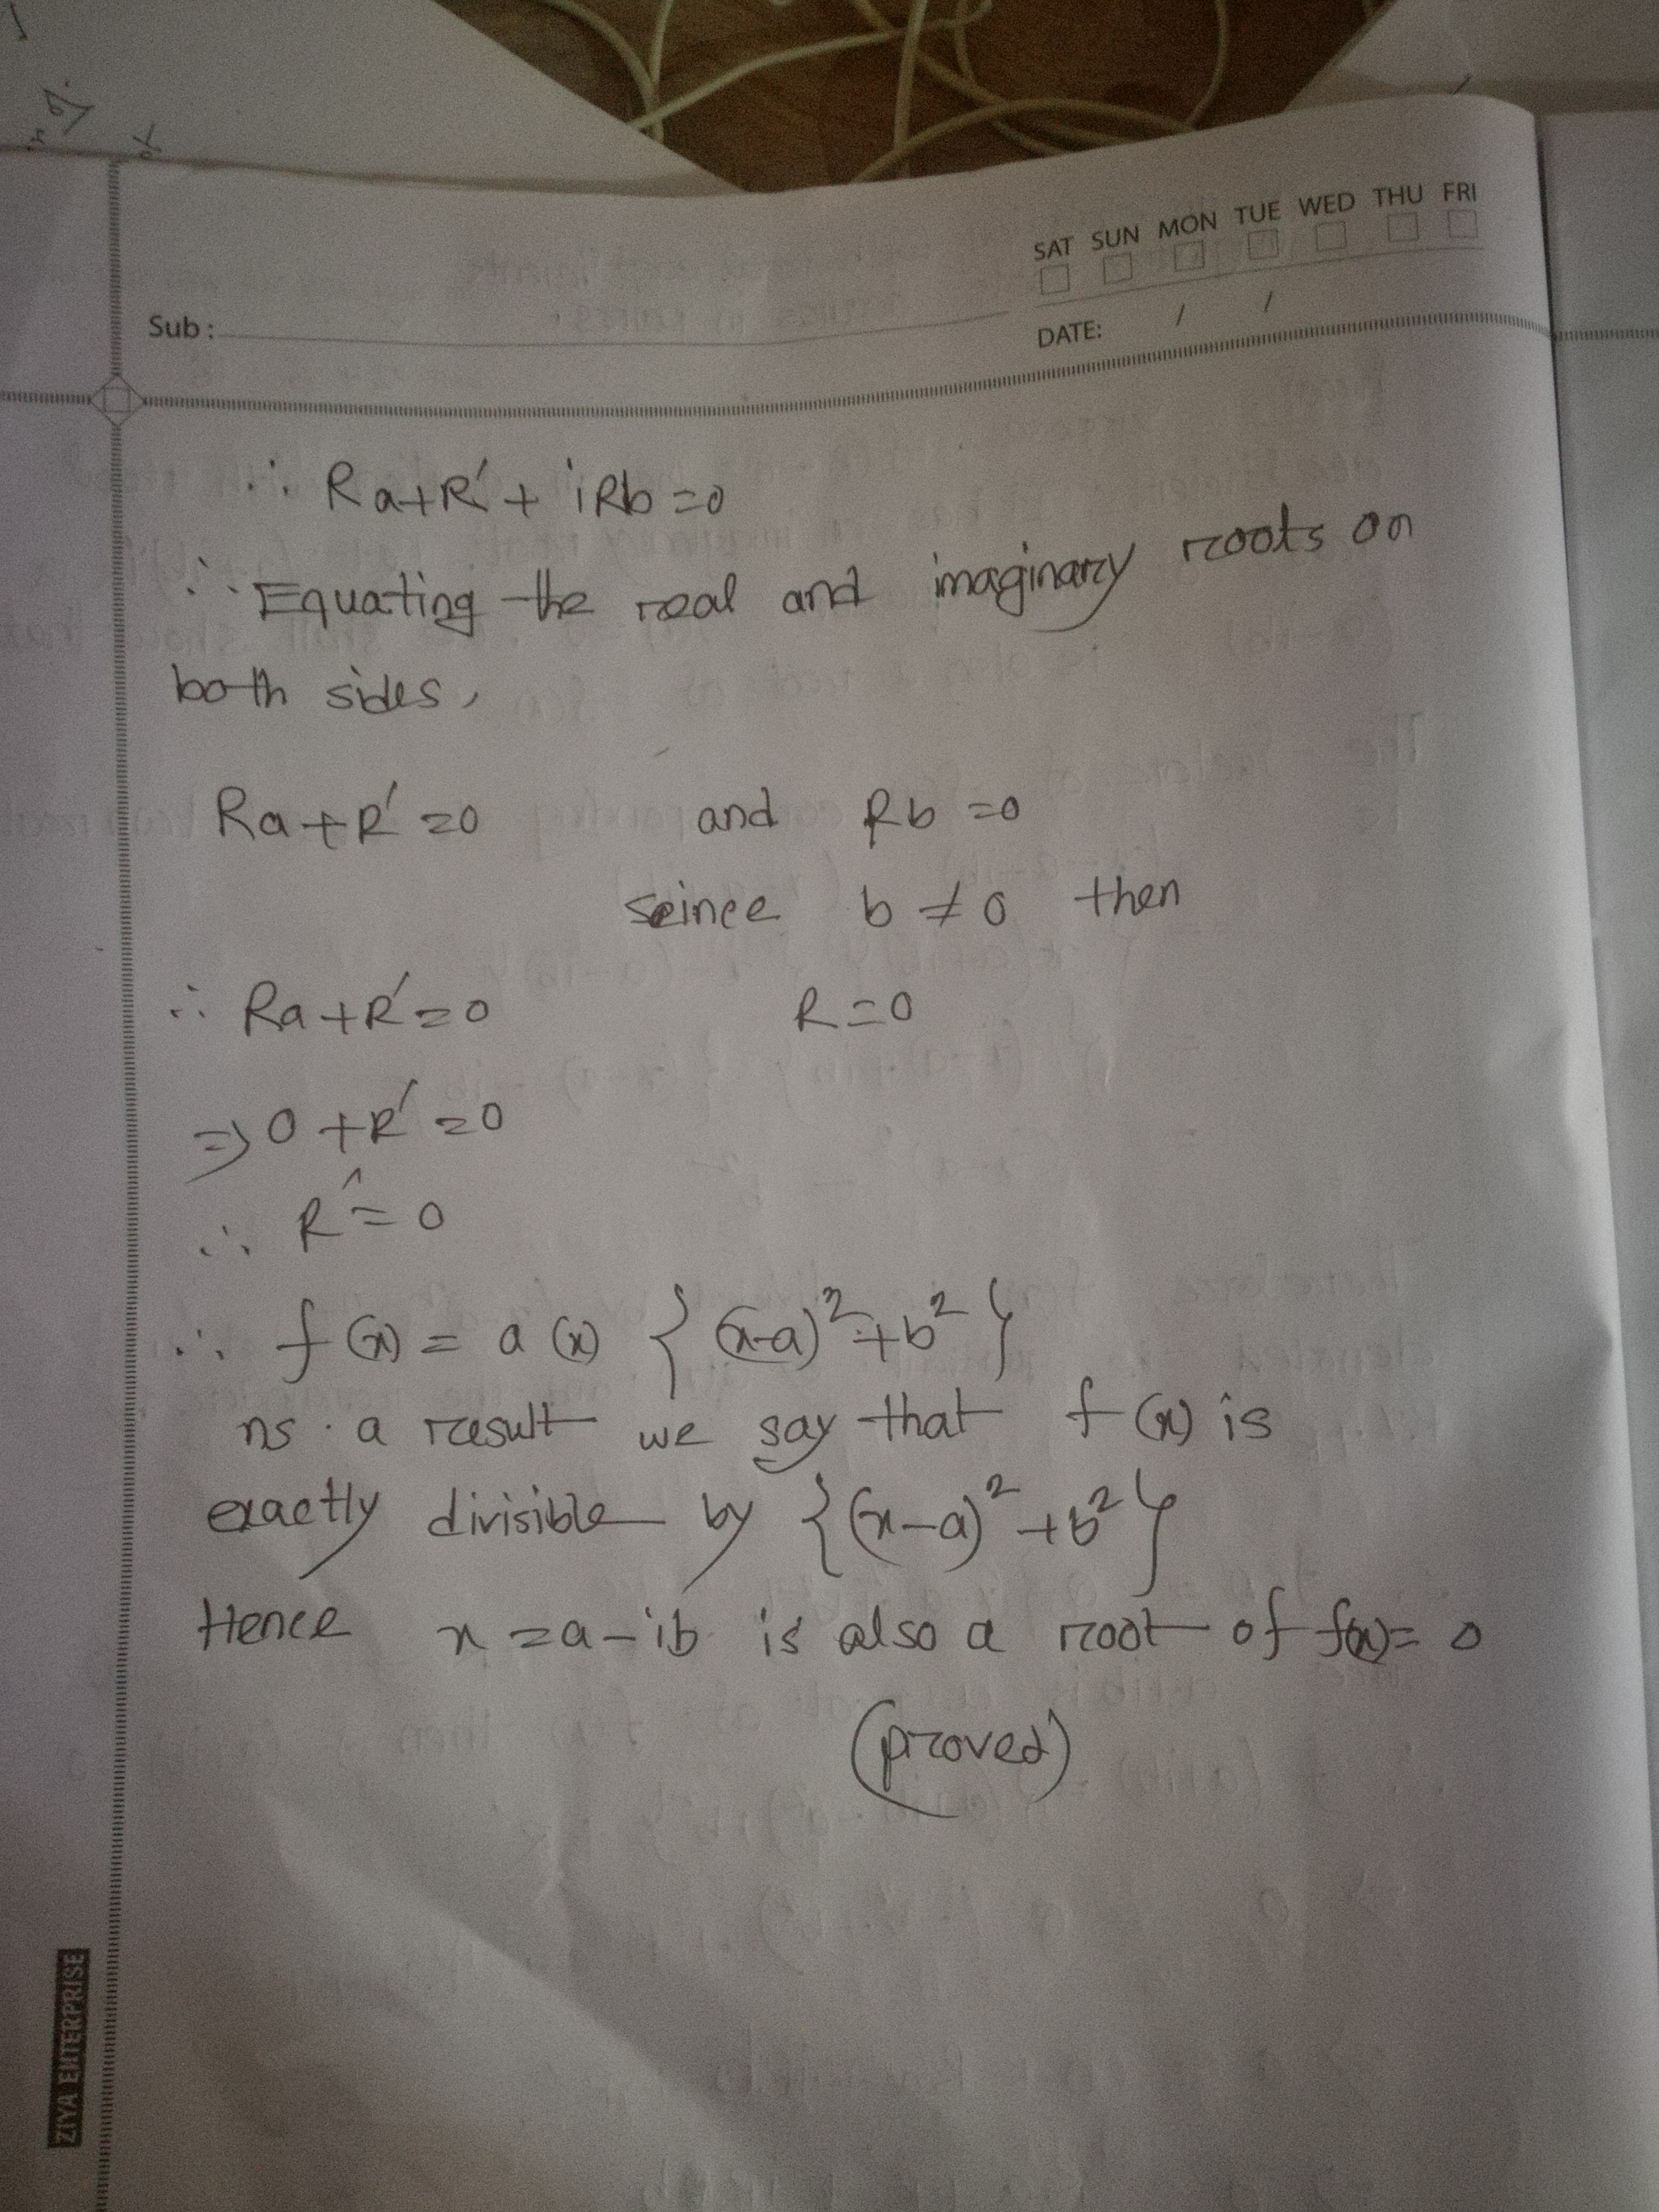 SAT SUN MON TUE WED THU FRI
Sub :
DATE: / /
∴ Ra+R′ + iRb = 0
∴ Equating the real and imaginary roots on
both sides,
Ra+R′ = 0 and Rb = 0
seince b ≠ 0 then
∴ Ra+R′ = 0 R = 0
⇒ 0 + R′ = 0
∴ R′ = 0
∴ f(x) = a(x) {(x-a)² + b²}
ns · a result we say that f(x) is
exactly divisible by {(x-a)² + b²}
Hence x = a - ib is also a root of f(x) = 0
(proved)
ZIYA ENTERPRISE